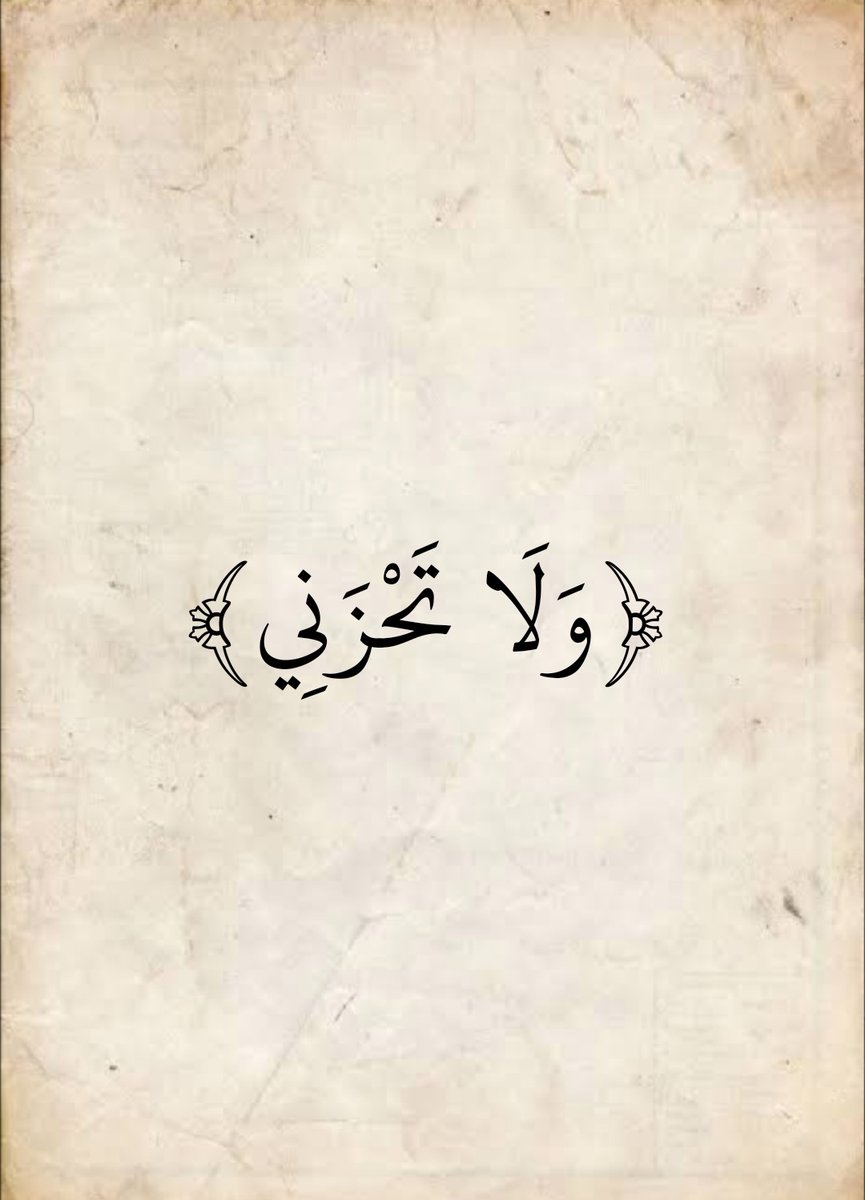 ﴿وَلَا تَحْزَنِي﴾